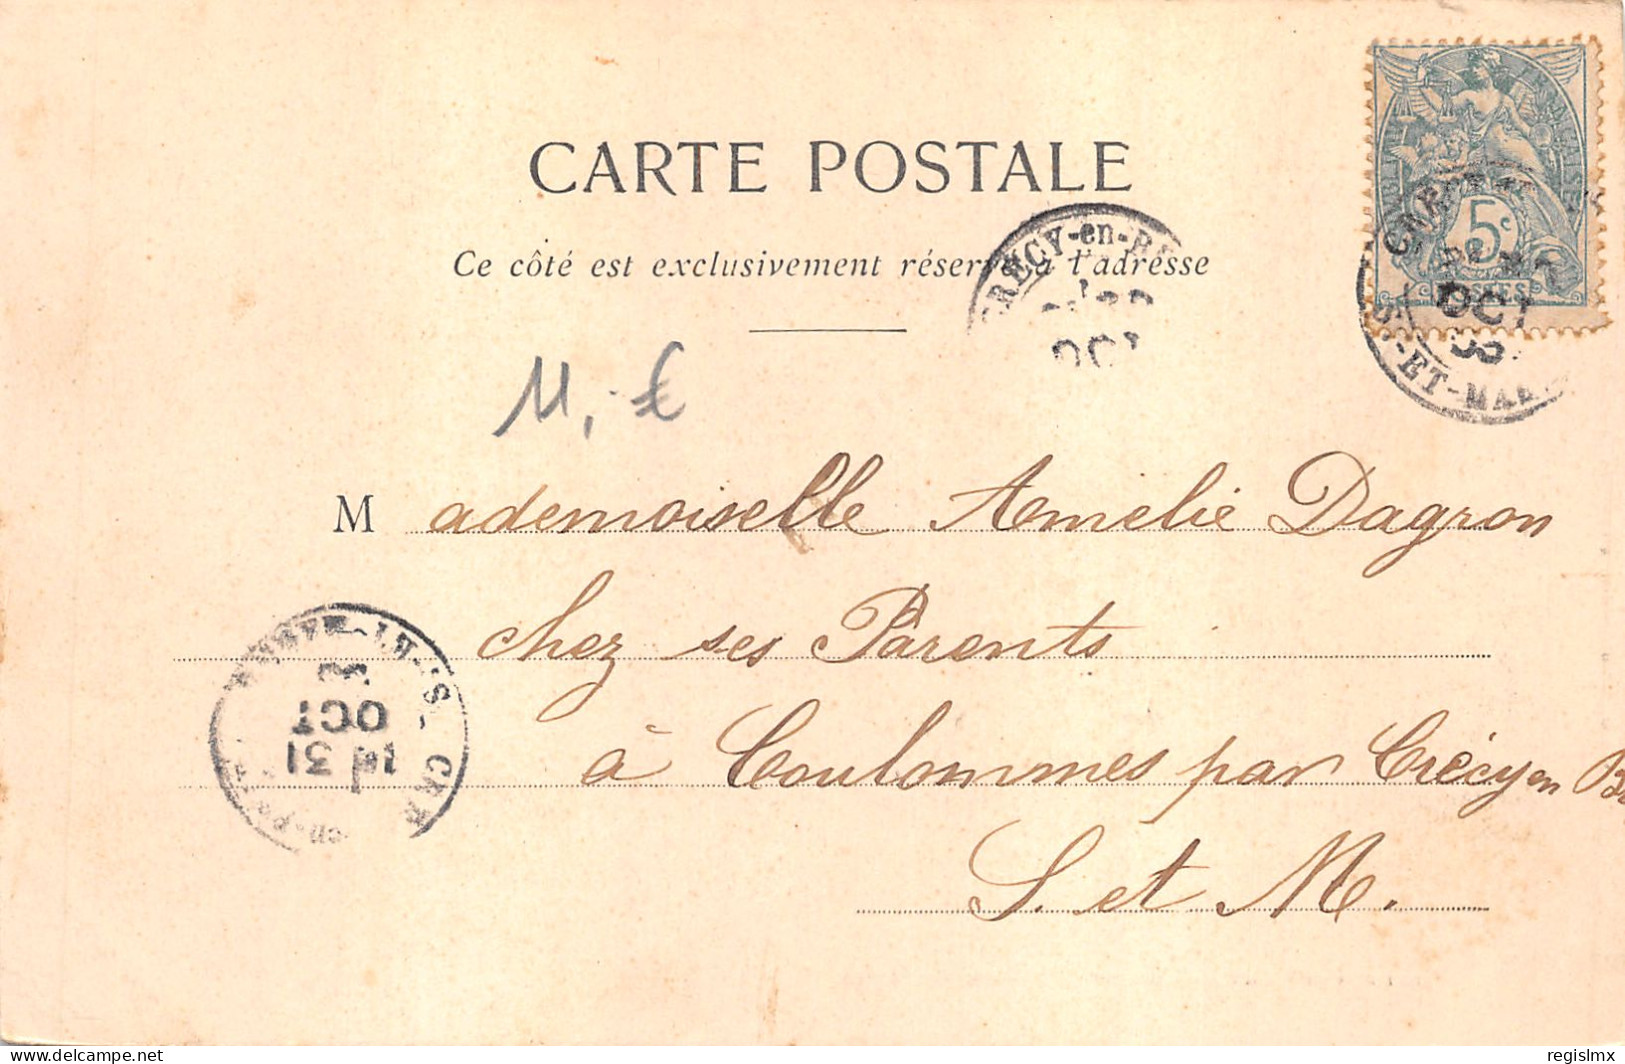 CARTE POSTALE
Ce côté est exclusivement réservé à l'adresse
5c
POSTES
CRÉCY-en-B
OCT
OCT
ET-MAR
11,-€
Mademoiselle Amelie Dagron
chez ses Parents
à Coulommes par Crécy en B
S. et M.
31
OCT
delcampe.net
regislmx